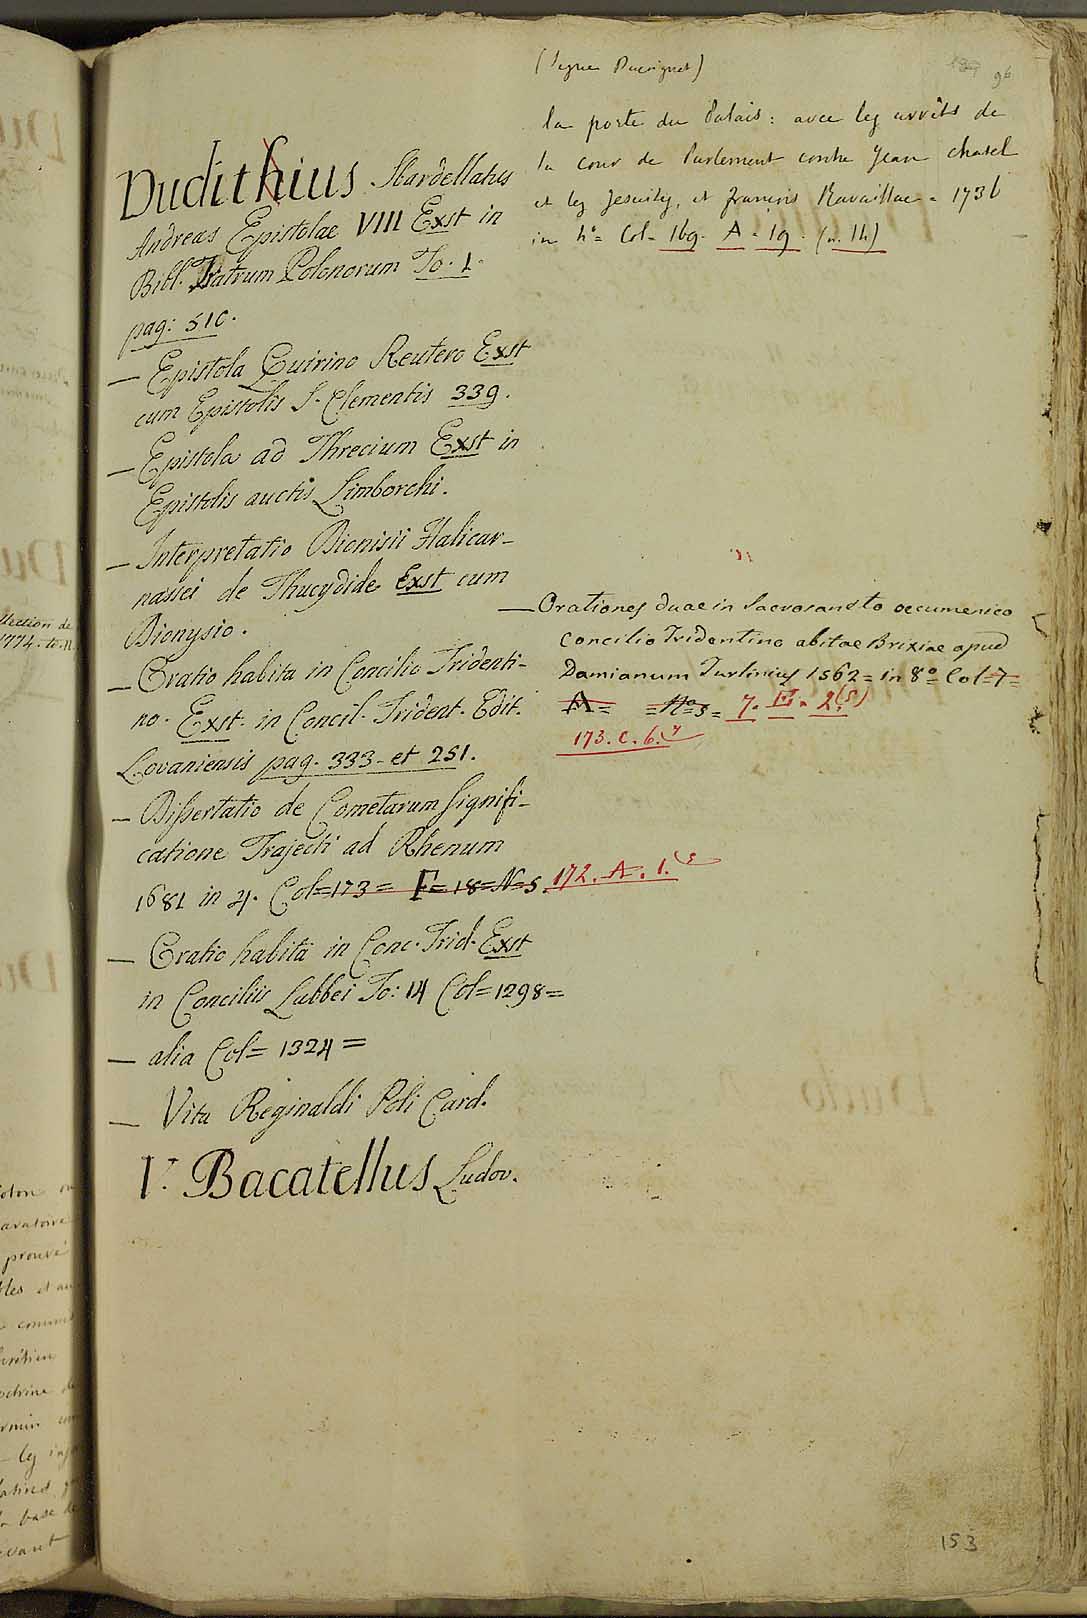 96
Dudithius Sbardellatus
Andreas Epistolae VIII Exst in
Bibl. Fratrum Polonorum To. 1.
pag: 510.
— Epistola Quirino Reutero Exst
cum Epistolis S. Clementis 339.
— Epistola ad Threcium Exst in
Epistolis auctis Limborchi.
— Interpretatio Dionisii Halicar-
nassei de Thucydide Exst cum
Dionysio.
— Oratio habita in Concilio Tridenti-
no. Exst. in Concil. Trident. Edit.
Lovaniensis pag. 333. et 251.
— Dissertatio de Cometarum Signifi-
catione Trajecti ad Rhenum
1681 in 4. Col=173= F=18=N=5. 172. A. 1.
— Oratio habita in Conc. Trid. Exst
in Conciliis Labbei To: 14 Col=1298=
— alia Col= 1324=
— Vita Reginaldi Poli Card.
V. Bacatellus Ludov.
(Segue Ducrignet)
la porte du Palais: avec les arrêts de
la cour de Parlement contre Jean chatel
et les Jesuites, et françois Ravaillac = 1736
in 4º= Col= 169. A = 19. (n. 14)
— Orationes duae in Sacrosancto oecumenico
Concilio Tridentino abitae Brixiae apud
Damianum Turlinius 1562= in 8º= Col=7=
A= =Nº5= 7. E. 2.(5)
173. C. 6.
153
llection de
1774. to. 11.
prouvé